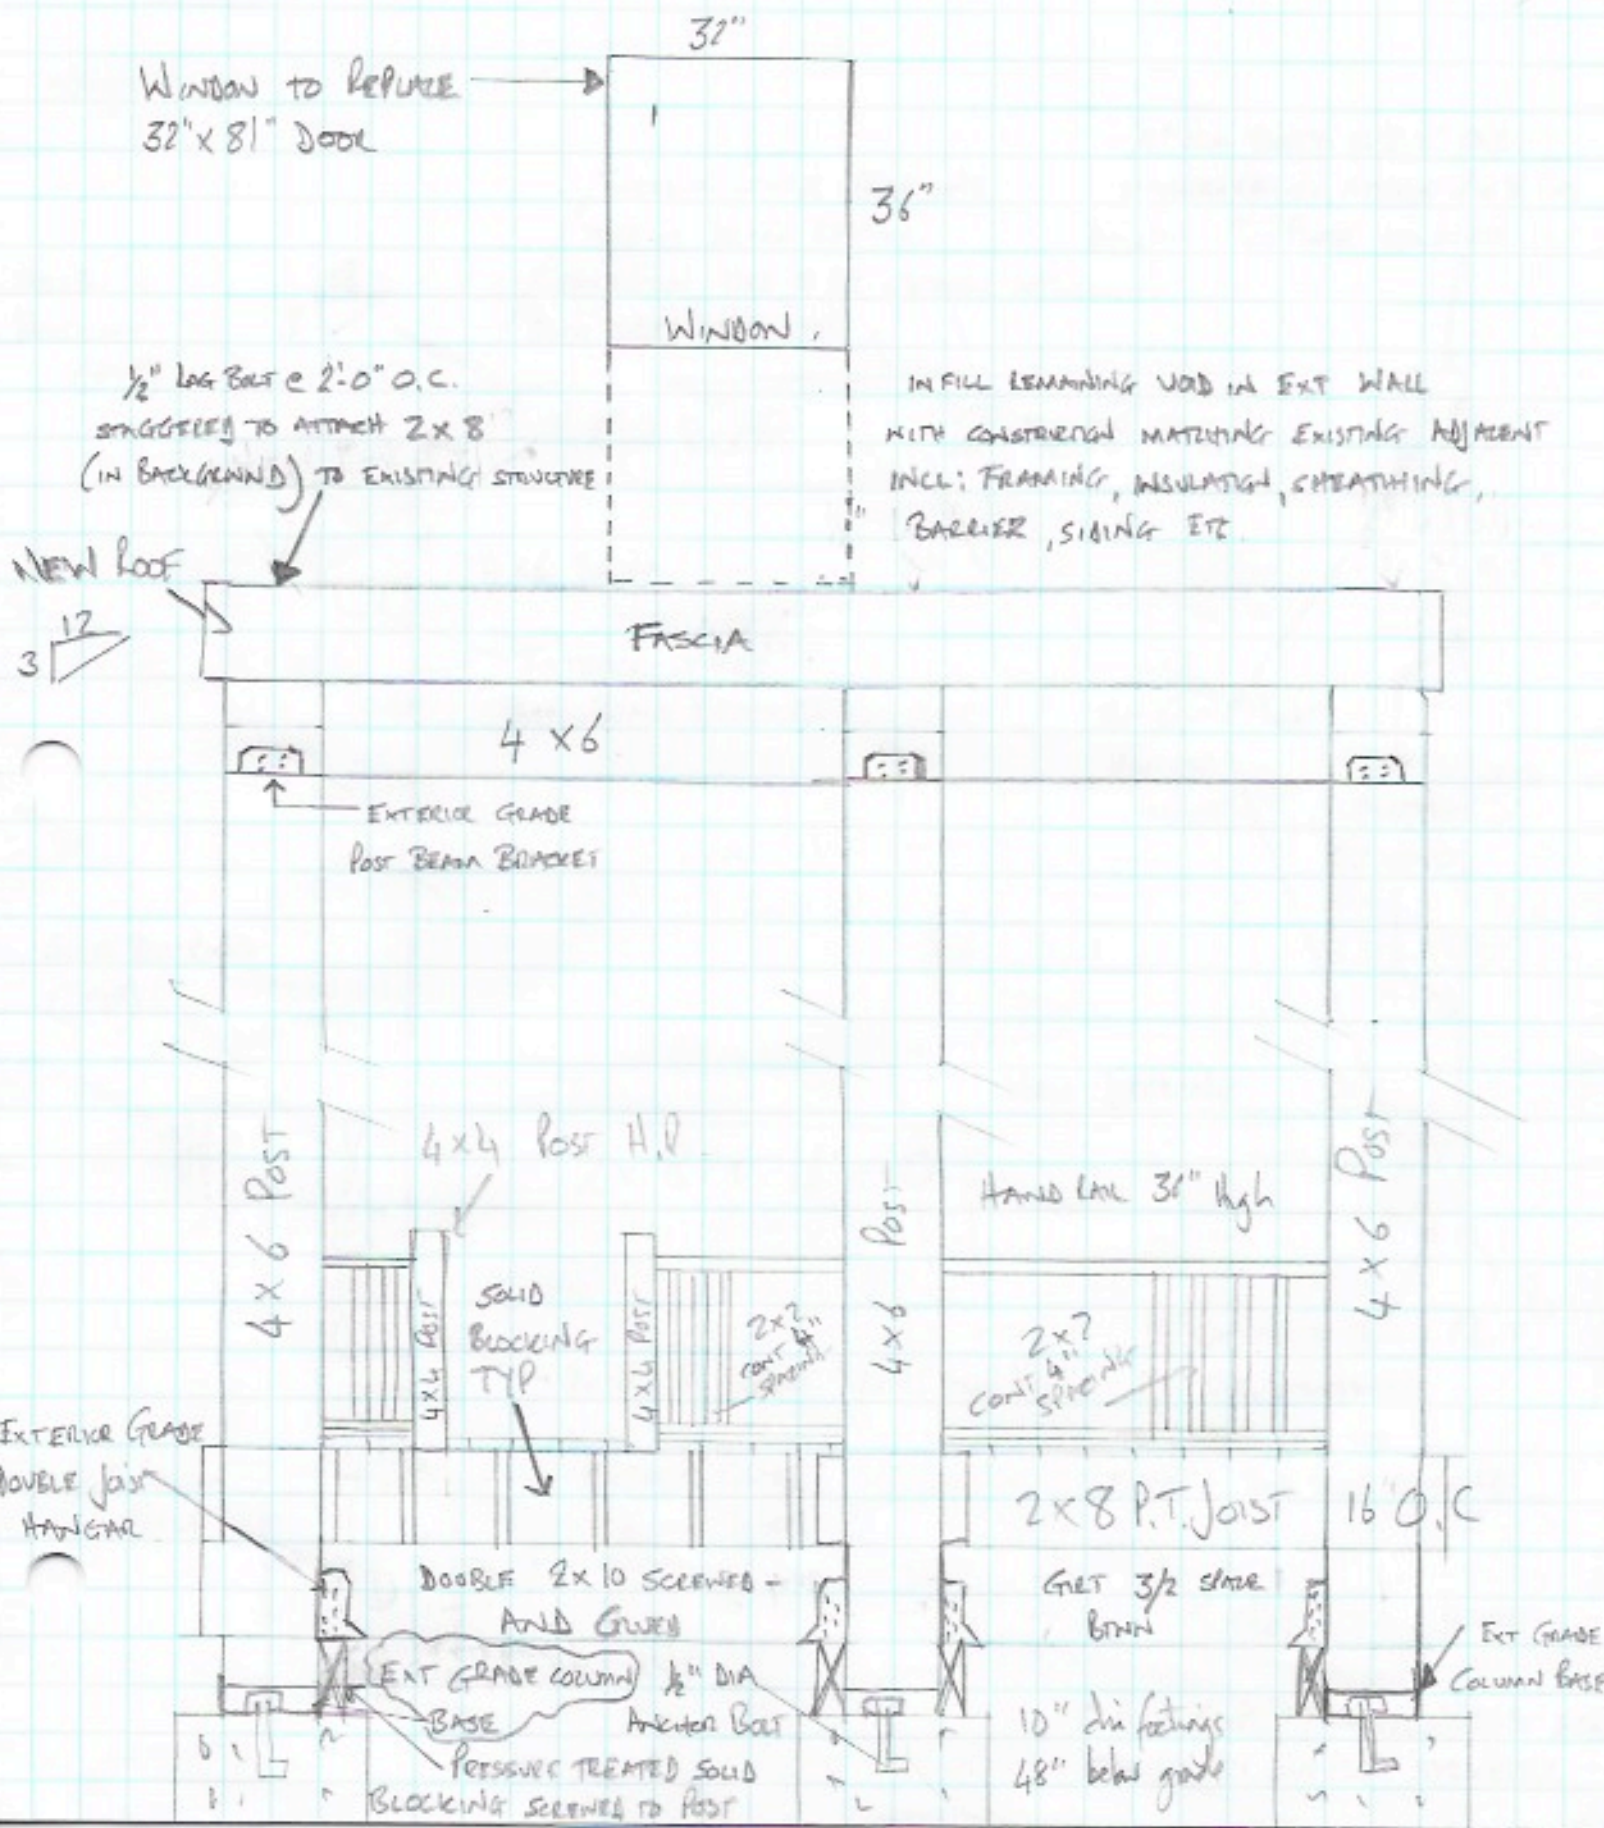 32"
WINDOW TO REPLACE
32" X 81" DOOR
36"
WINDOW
1/2" LAG BOLT @ 2'-0" O.C.
STAGGERED TO ATTACH 2 X 8
(IN BACKGROUND) TO EXISTING STRUCTURE
INFILL REMAINING VOID IN EXT WALL
WITH CONSTRUCTION MATCHING EXISTING ADJACENT
INCL: FRAMING, INSULATION, SHEATHING,
BARRIER, SIDING ETC
NEW ROOF
12
3
FASCIA
4 X 6
EXTERIOR GRADE
POST BEAM BRACKET
4 X 4 POST H.P.
HAND RAIL 36" High
4 X 6 POST
4 X 6 POST
4 X 6 POST
4 X 4 POST
SOLID
BLOCKING
TYP
4 X 4 POST
2 X 2
CONT 4"
SPACING
2 X 2
CONT 4"
SPACING
EXTERIOR GRADE
DOUBLE JOIST
HANGAR
2 X 8 P.T. JOIST 16" O.C
DOUBLE 2 X 10 SCREWED -
AND GLUED
GIRT 3/2
BTWN
EXT GRADE COLUMN
BASE
1/2" DIA
ANCHOR BOLT
EXT GRADE
COLUMN BASE
10" dia footings
48" below grade
PRESSURE TREATED SOLID
BLOCKING SCREWED TO POST